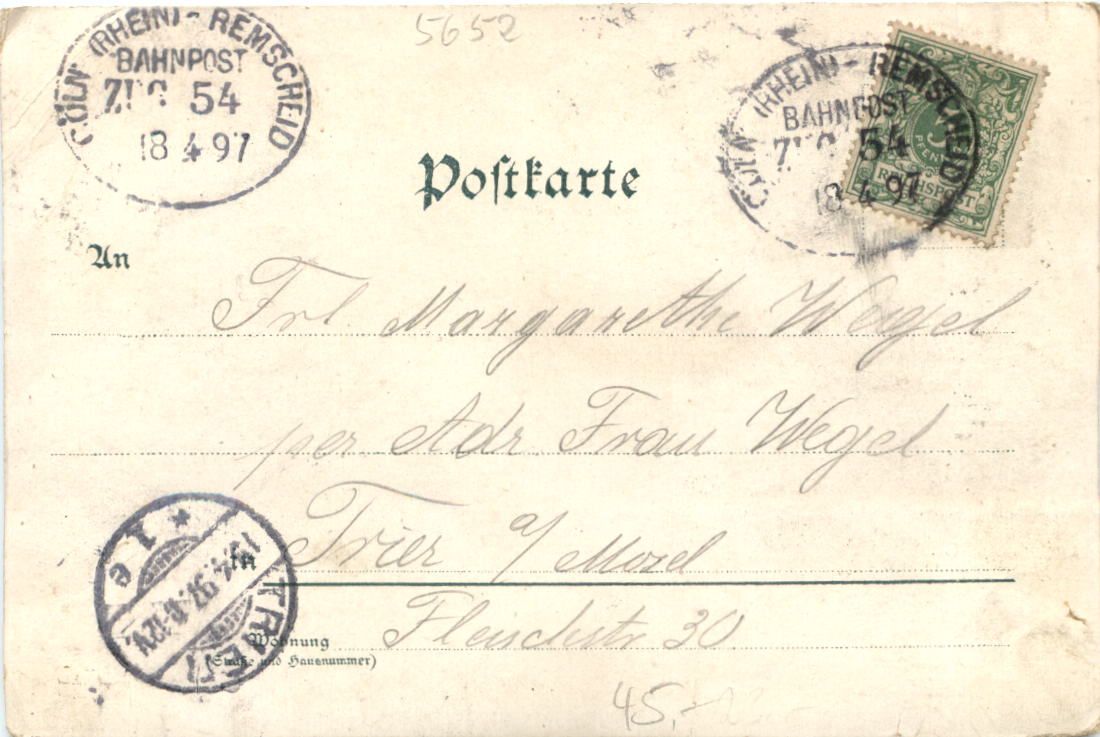 5652
CÖLN (RHEIN) - REMSCHEID
BAHNPOST
ZUG 54
18 4 97
CÖLN (RHEIN) - REMSCHEID
BAHNPOST
ZUG 54
18 4 97
5
PFENNIG
REICHSPOST
Postkarte
An
Frl. Margarethe Wegel
per Adr Frau Wegel
in Trier a/ Mosel
Fleischstr. 30
Wohnung
(Straße und Hausnummer)
TRIER
* 1 e
45,-